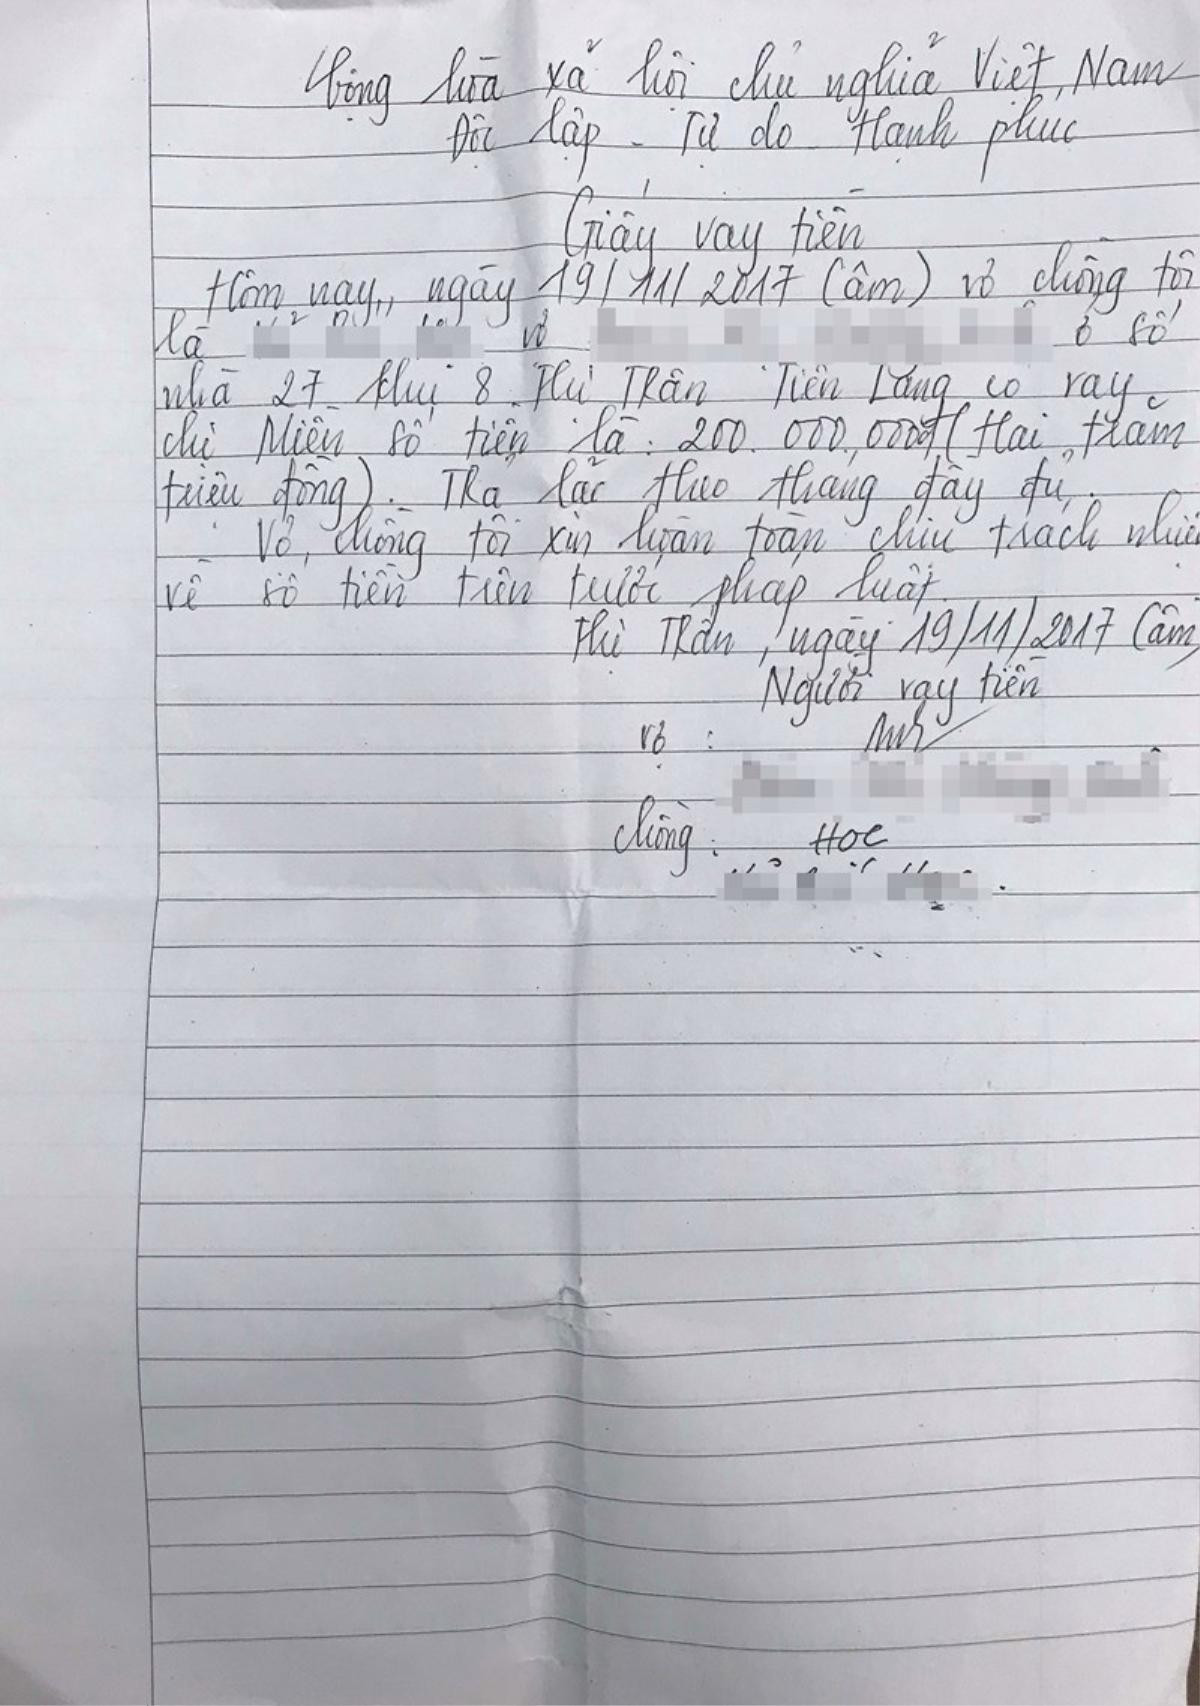 Cộng hòa xã hội chủ nghĩa Việt Nam
Độc lập - Tự do Hạnh phúc
Giấy vay tiền
Hôm nay, ngày 19/11/2017 (âm) vợ chồng tôi
là vợ ở số
nhà 27 khu 8 Thị Trấn Tiên Lãng có vay
chị Miền số tiền là: 200.000.000đ (Hai trăm
triệu đồng). Trả lãi theo tháng đầy đủ.
Vợ, chồng tôi xin hoàn toàn chịu trách
về số tiền trên trước pháp luật.
Thị Trấn, ngày 19/11/2017 (âm)
Người vay tiền
vợ :
chồng : Học